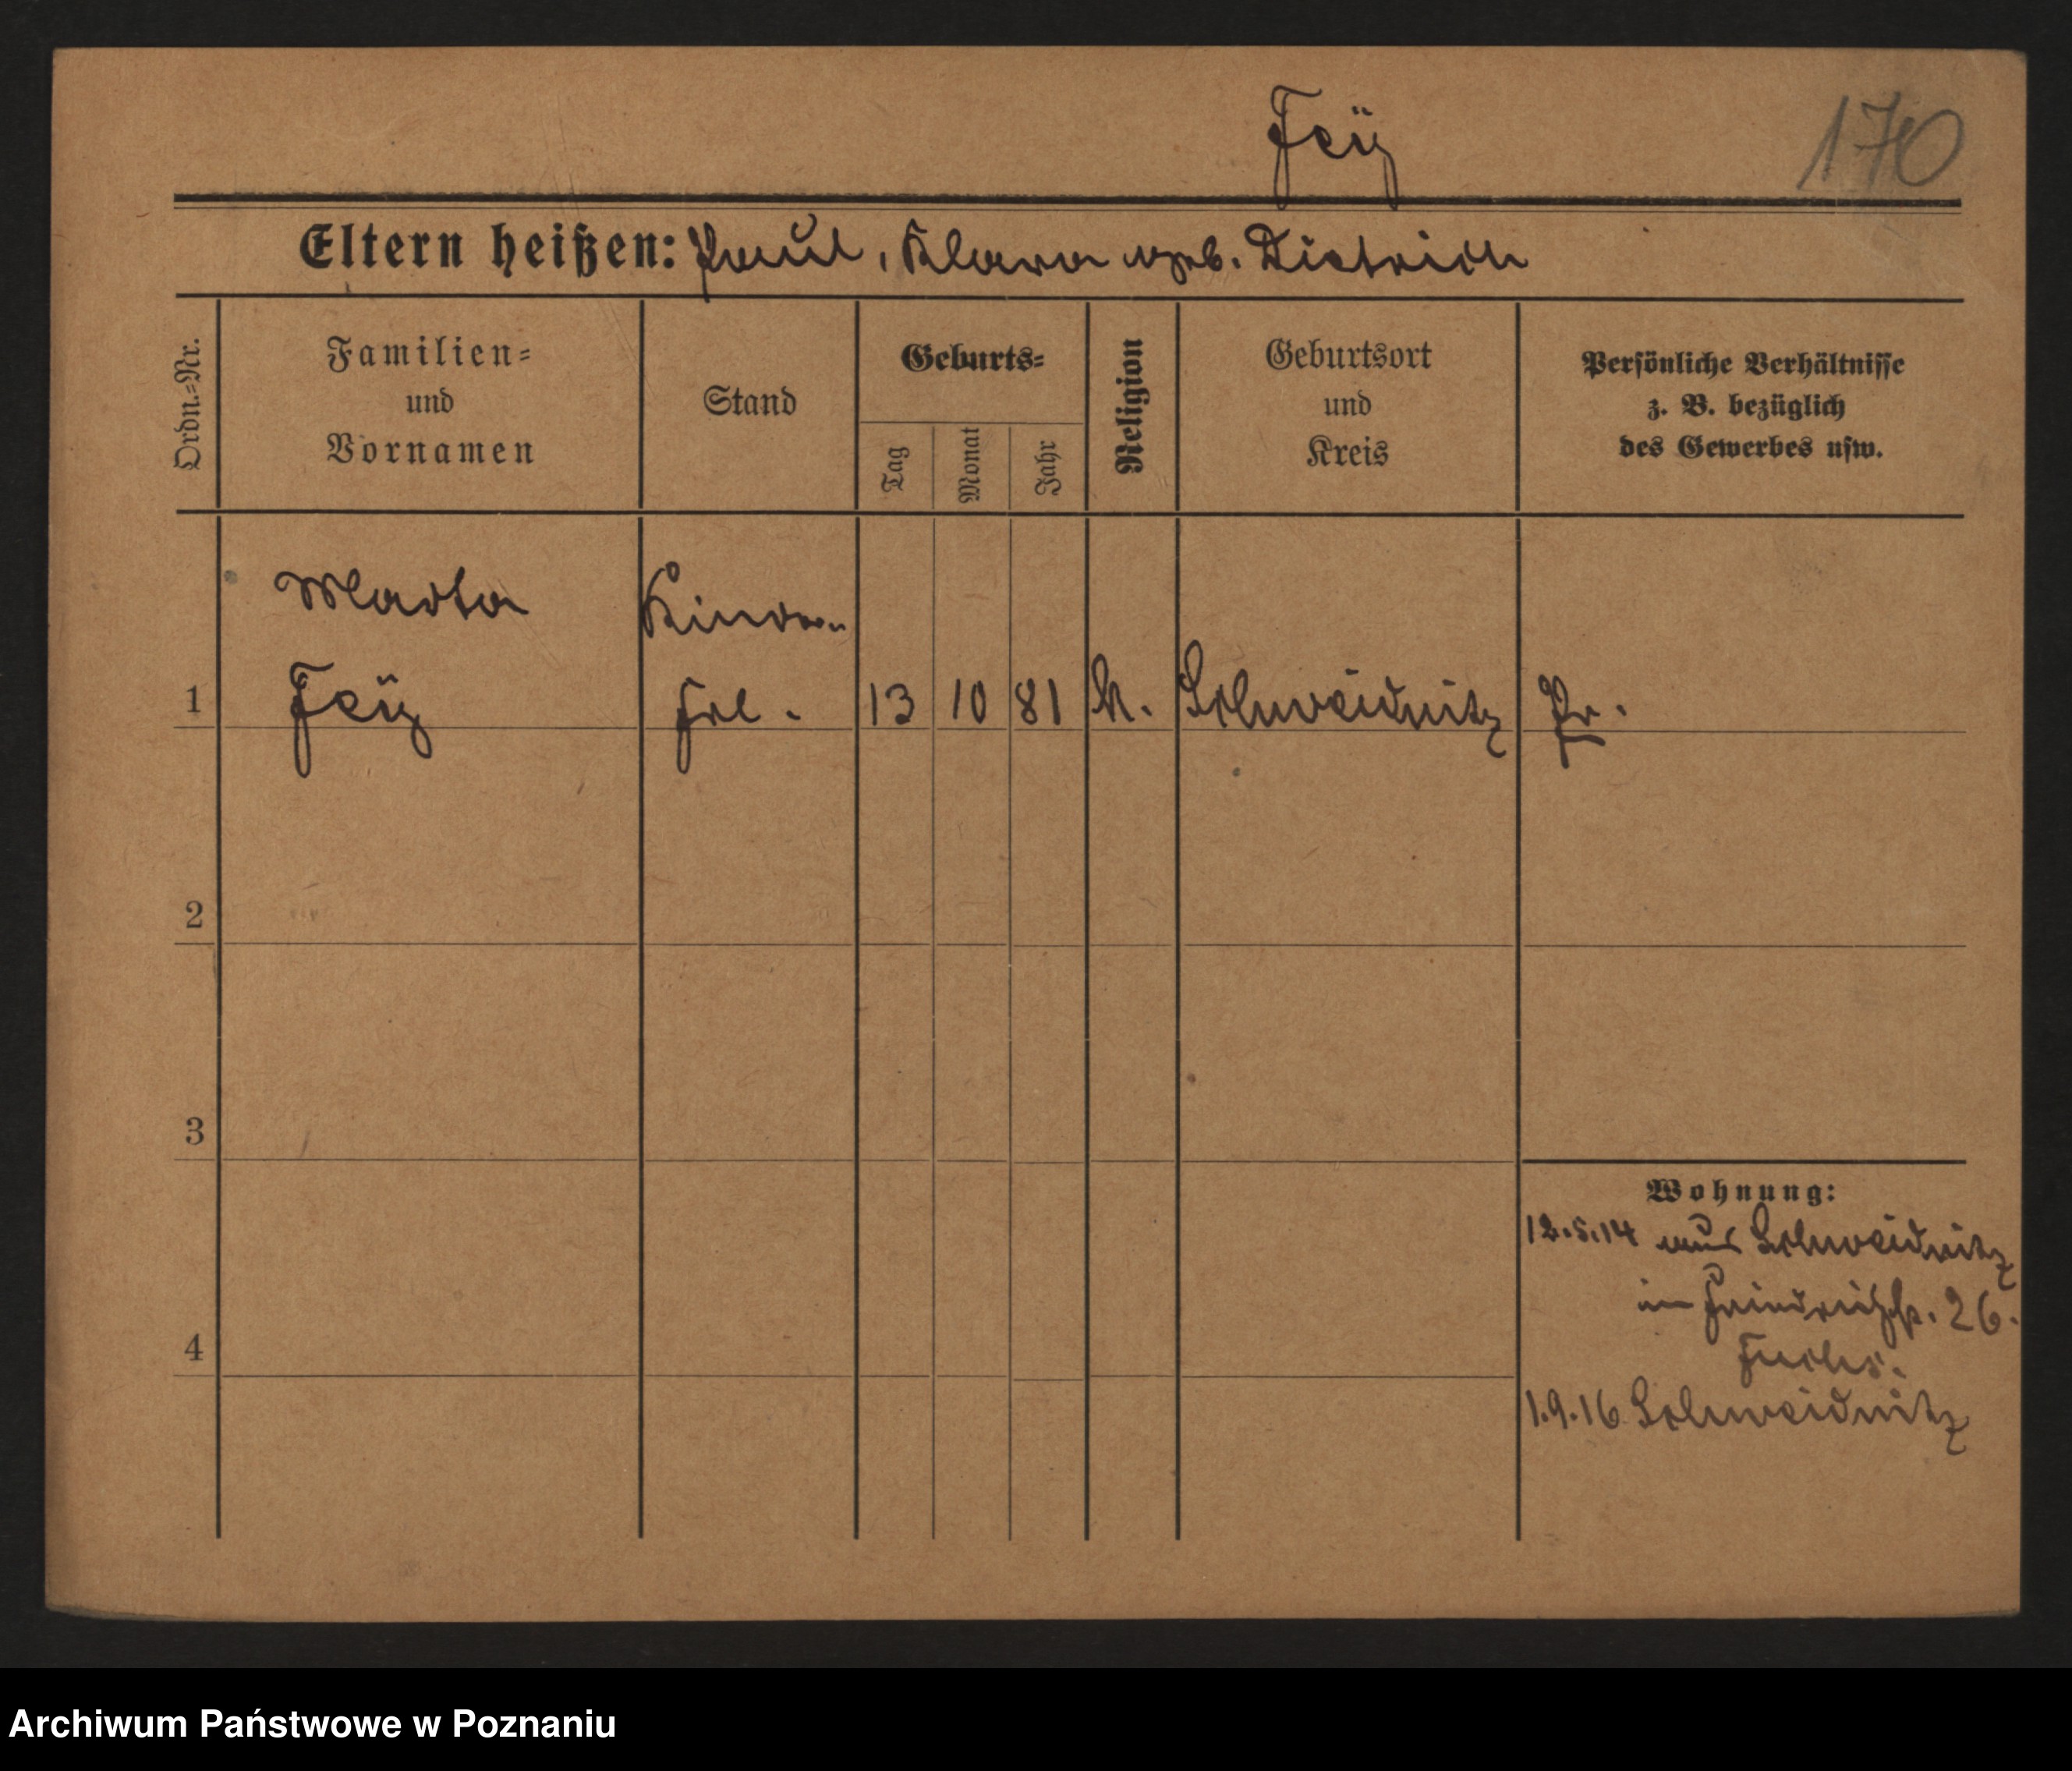 Feÿ
170
Eltern heißen: Paul, Klara geb. Dietrich
Ordn.=Nr.
Familien=
und
Vornamen
Stand
Geburts=
Tag
Monat
Jahr
Religion
Geburtsort
und
Kreis
Persönliche Verhältnisse
z. B. bezüglich
des Gewerbes usw.
Marta
Kinder
1 Feÿ Frl. 13 10 81 k. Schweidnitz Pr.
2
3
4
Wohnung:
12.5.14 aus Schweidnitz
in Friedrichstr. 26.
Fuchs.
1.9.16 Schweidnitz
Archiwum Państwowe w Poznaniu